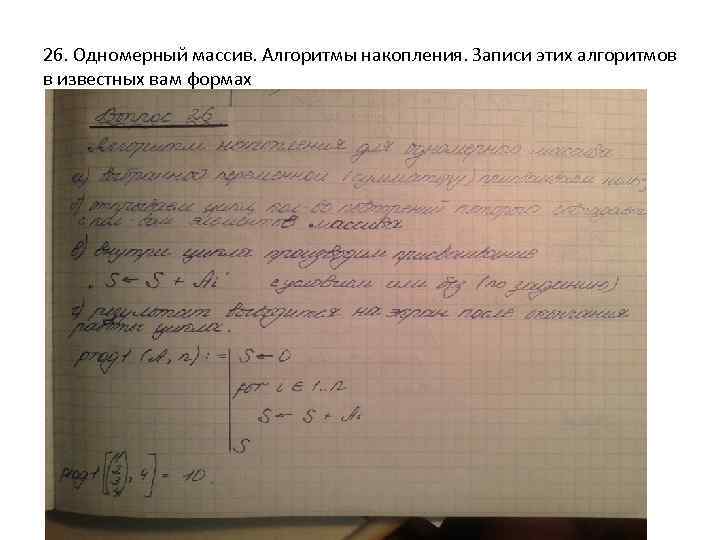 26. Одномерный массив. Алгоритмы накопления. Записи этих алгоритмов
в известных вам формах
Вопрос 26
Алгоритм накопления для одномерного массива
а) выбранной переменной (сумматору) присваиваем ноль
б) открываем цикл, кол-во повторений которого совпадает
с кол-вом элементов массива
в) внутри цикла производим присваивание
S ← S + Ai с условием или без (по заданию)
г) результат выводится на экран после окончания
работы цикла.
prog1 (A, n) := S ← 0
for i ∈ 1..n
S ← S + Ai
S
prog1 [(1 2 3 4), 4] = 10.